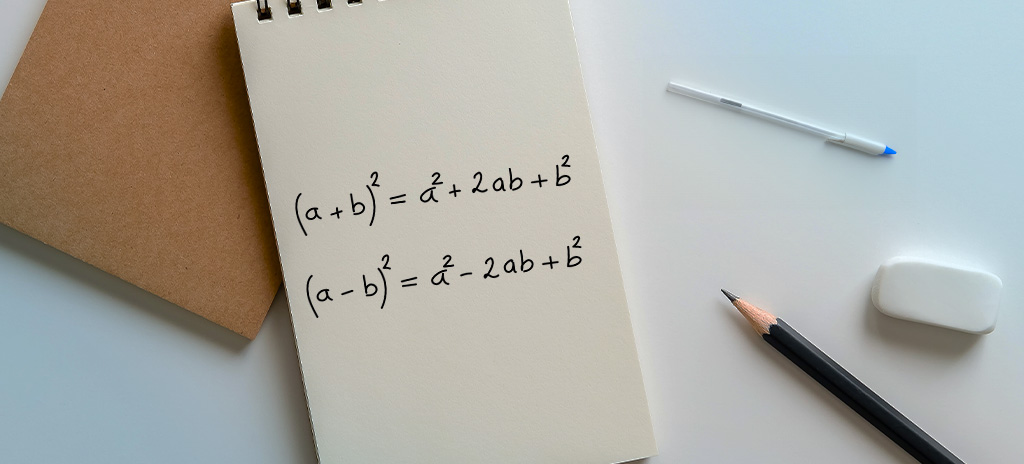 (a + b)² = a² + 2ab + b²
(a − b)² = a² − 2ab + b²